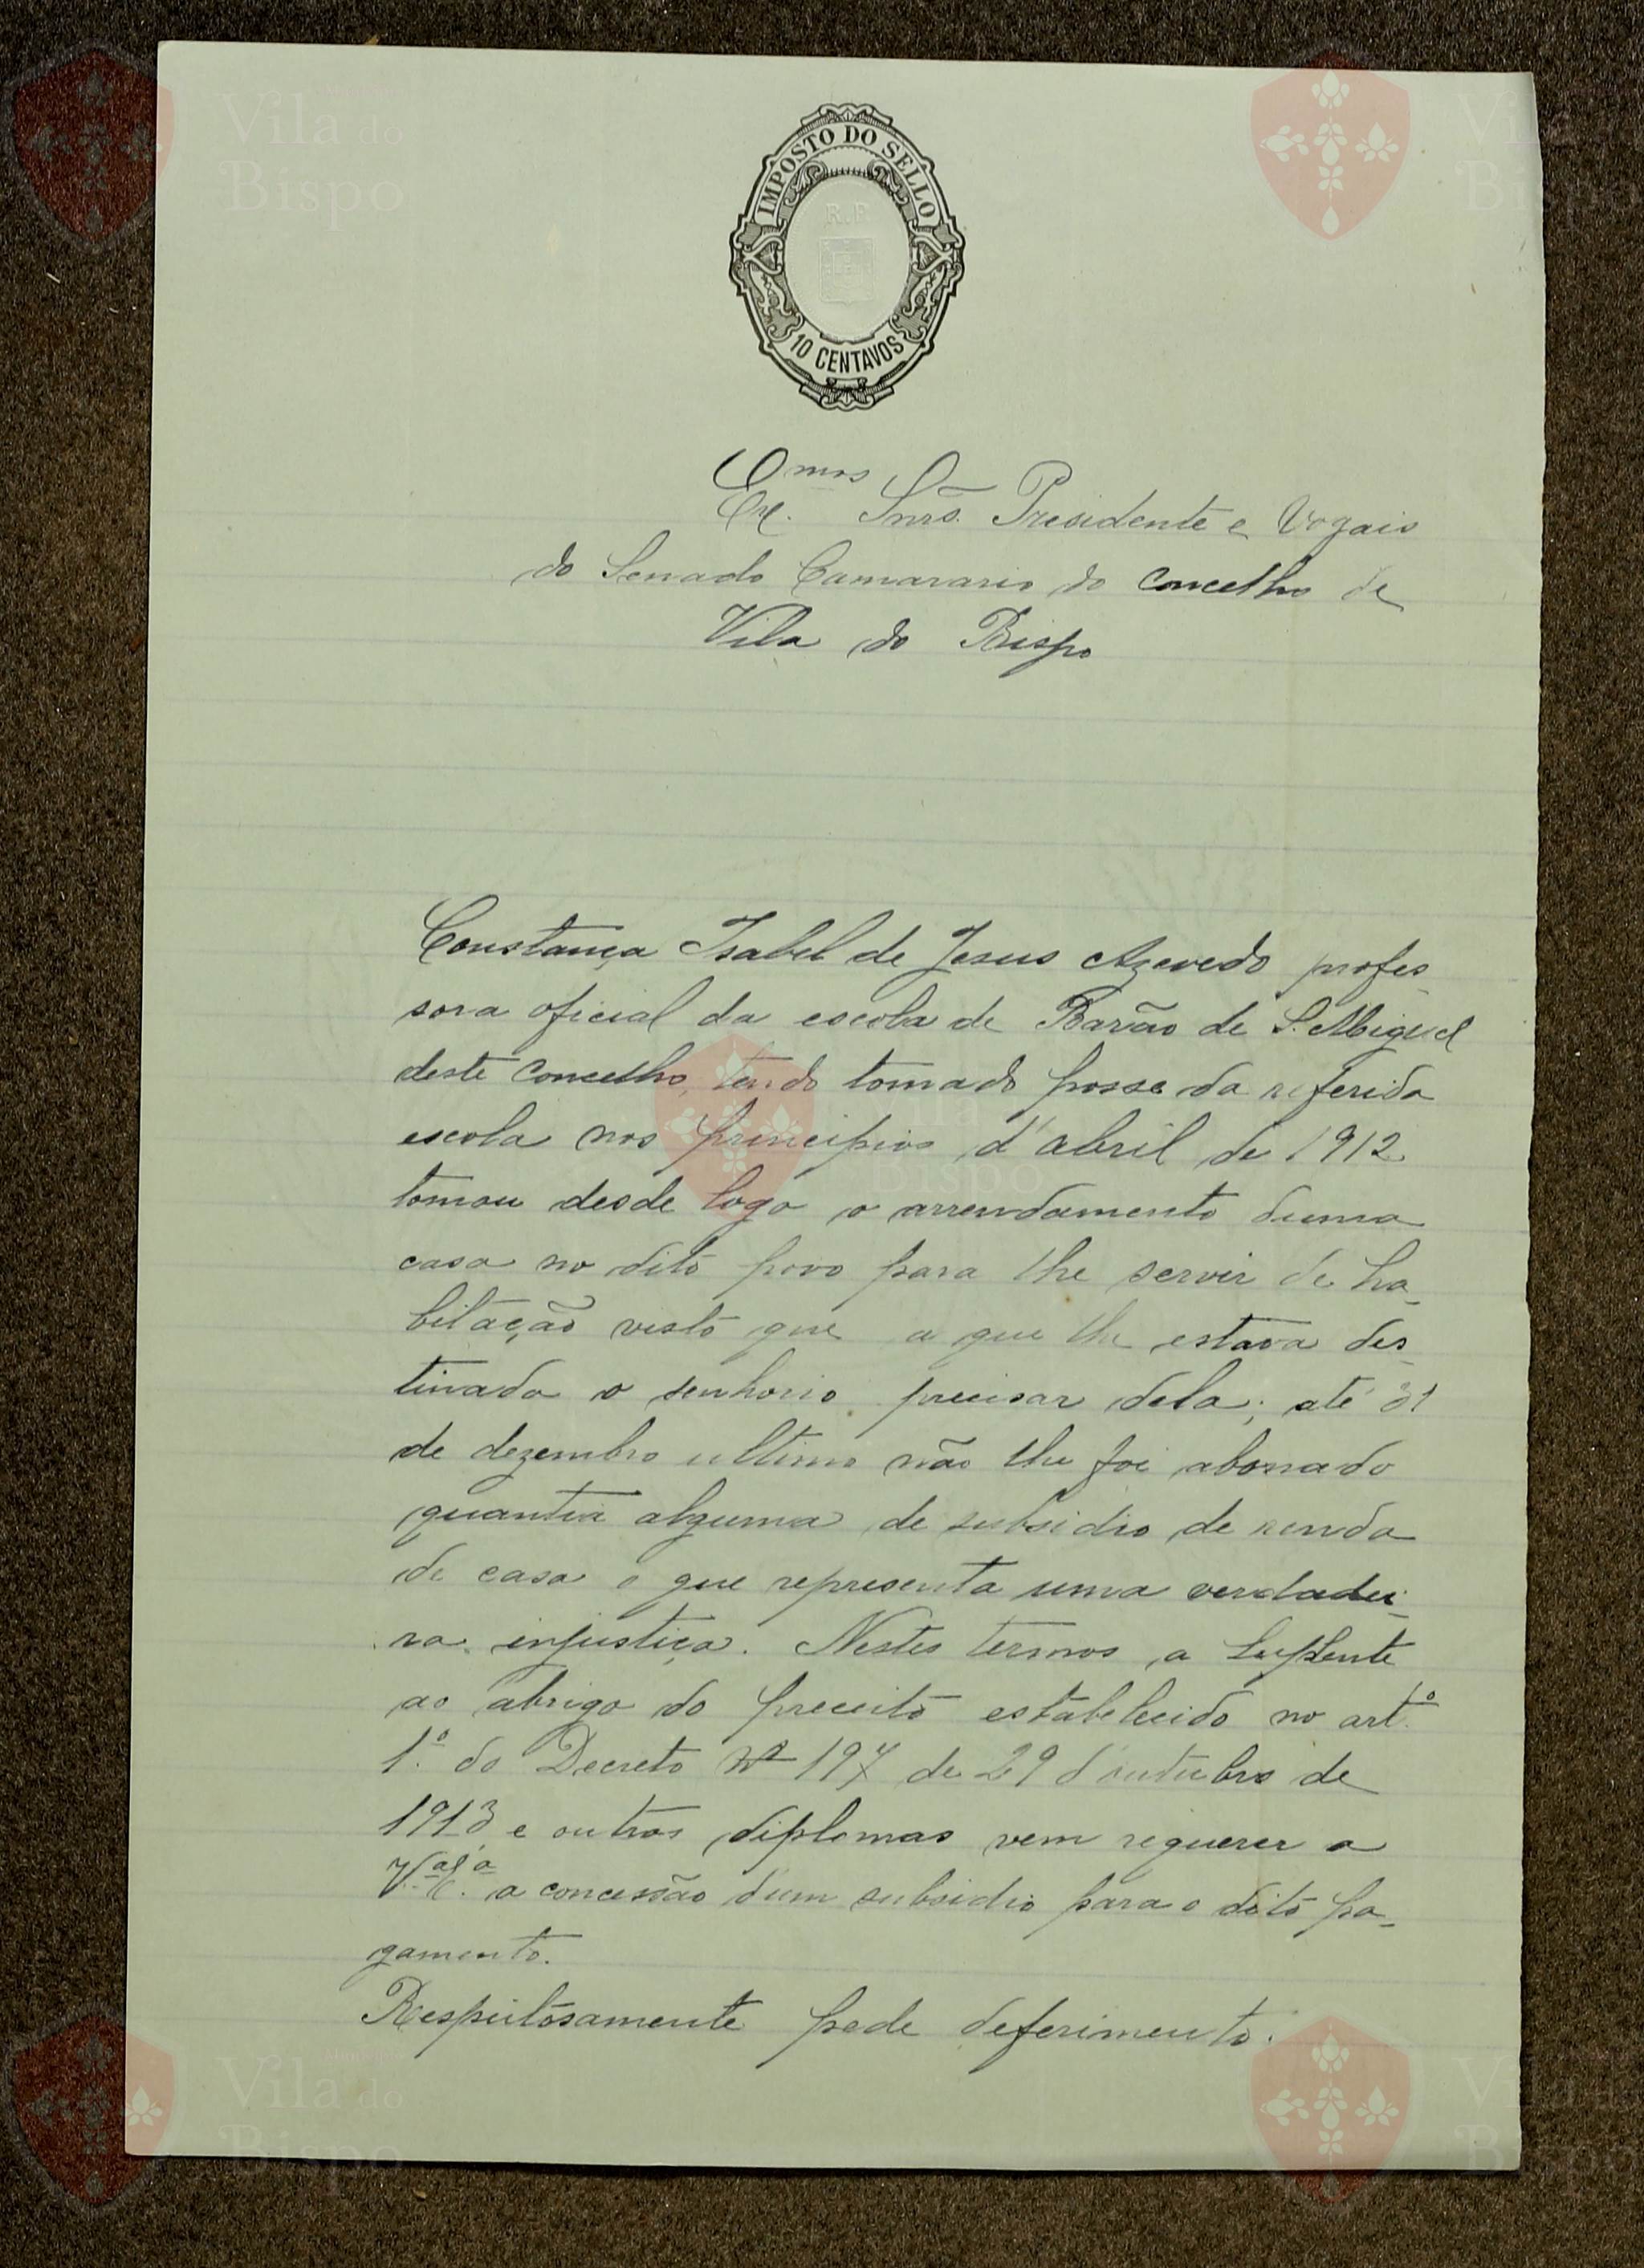 IMPOSTO DO SELLO
R.P.
10 CENTAVOS
Ex.mos Snrs. Presidente e Vogais
do Senado Camarario do concelho de
Vila do Bispo
Constança Isabel de Jesus Azevedo profes_
sora oficial da escola de Barão de S. Miguel
deste concelho, tendo tomado posse da referida
escola nos principios d'abril de 1912
tomou desde logo o arrendamento duma
casa no dito povo para lhe servir de ha_
bitação visto que a que lhe estava des_
tinada o senhorio precisar dela; até 31
de dezembro ultimo não lhe foi abonado
quantia alguma de subsidio de renda
de casa o que representa uma verdadei_
ra injustiça. Nestes termos a Suplente
ao abrigo do preceito estabelecido no art.º
1.º do Decreto nº 197 de 29 d'outubro de
1913 e outros diplomas vem requerer a
V.as Ex.as a concessão dum subsidio para o dito pa_
gamento.
Respeitosamente pede deferimento.
Vila do
Bispo
Vila do
Bispo